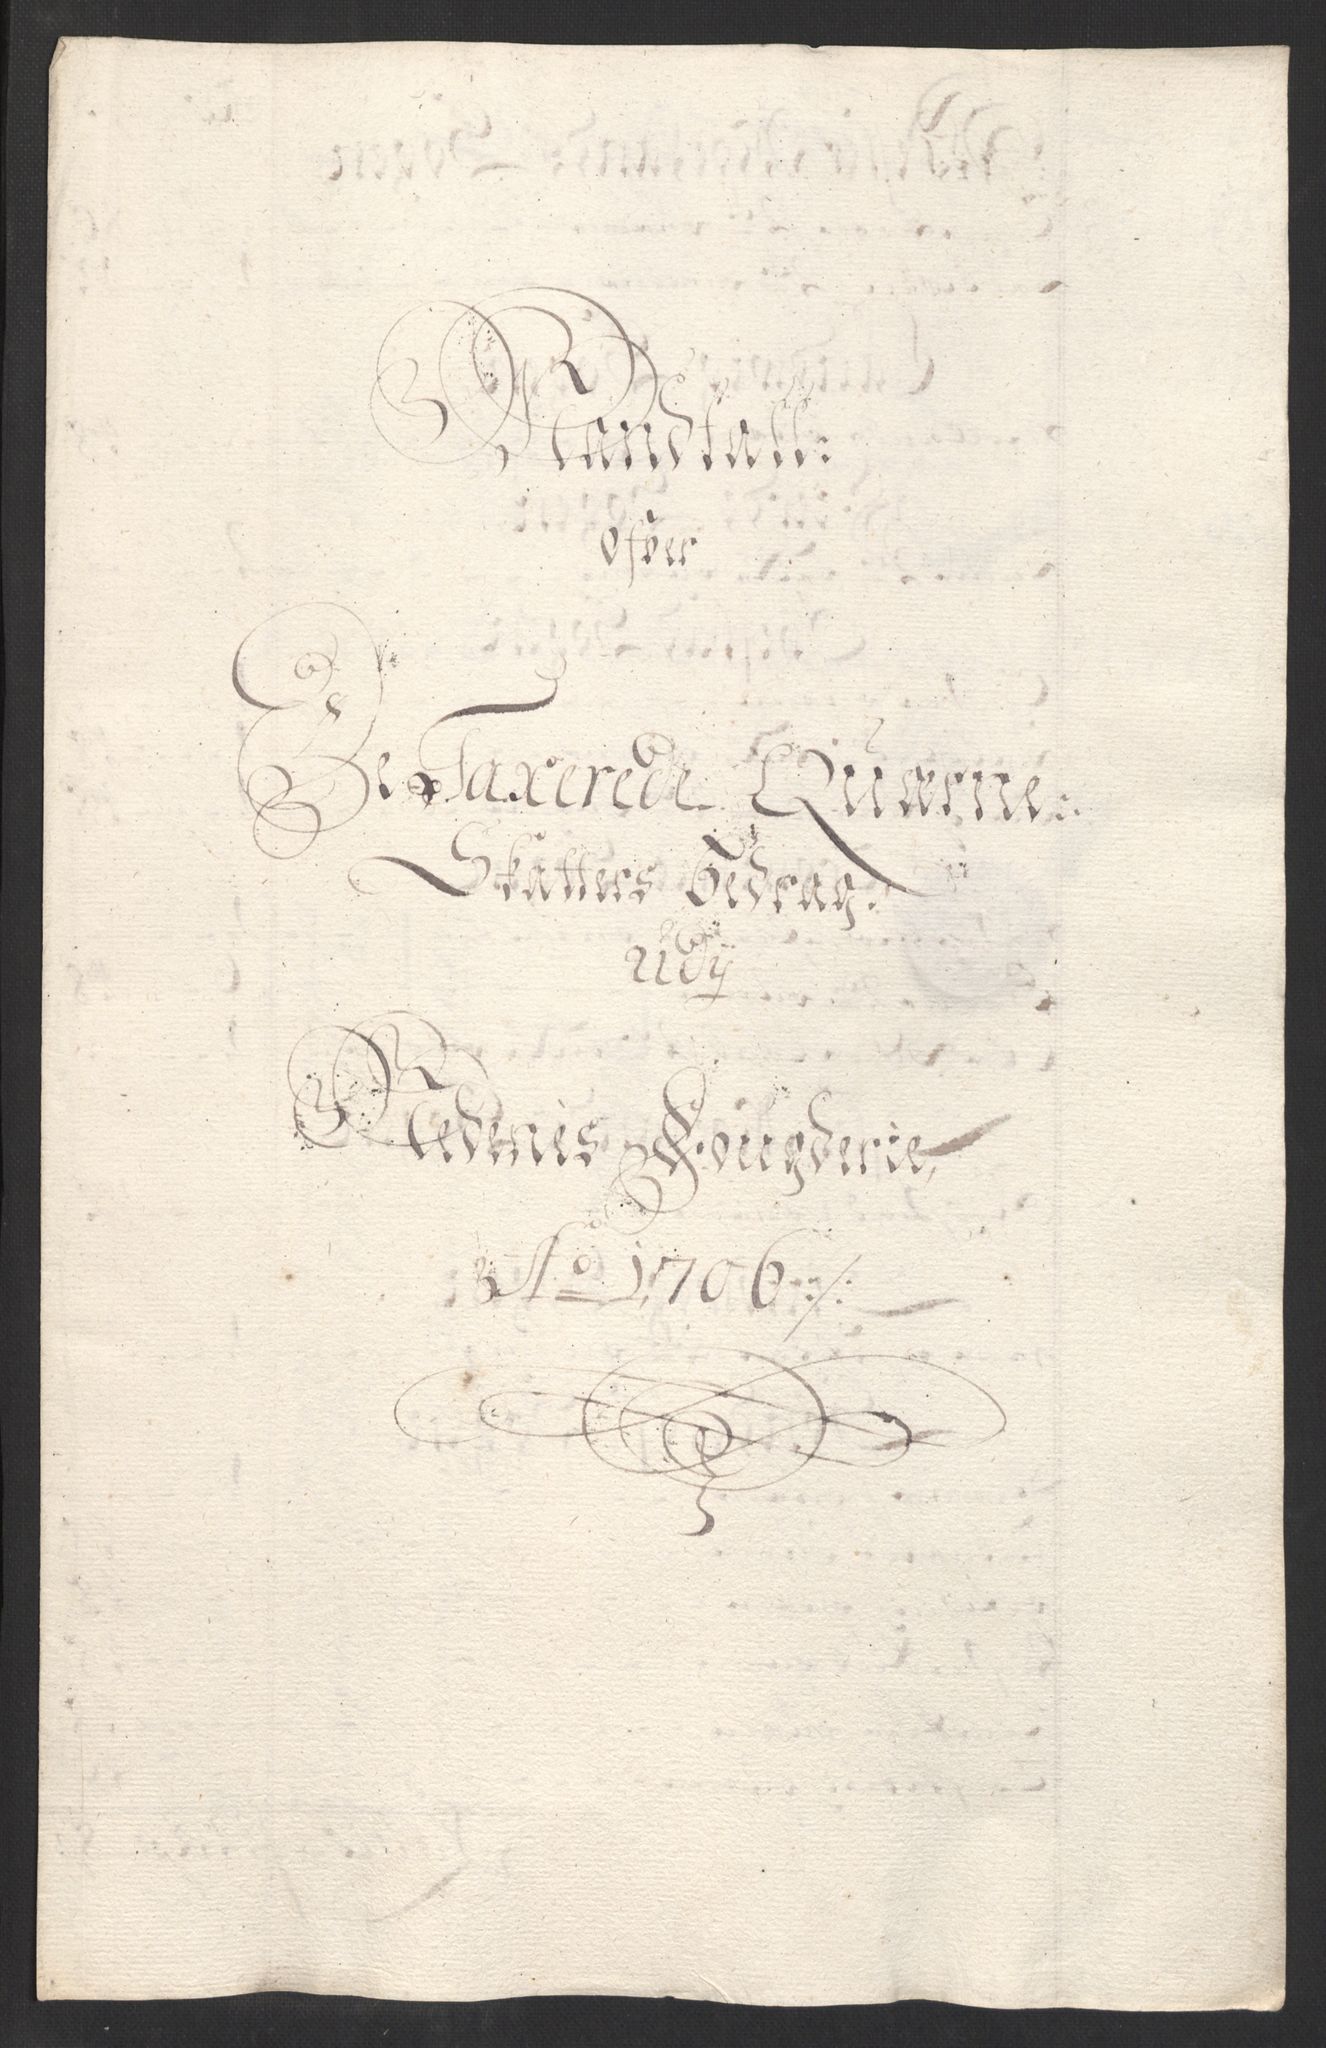 Mandtall:
ofver
De Taxerede Quærne:
Skatters bedrag:
udj
Nedenis Fougderie,
Ao 1706:/: